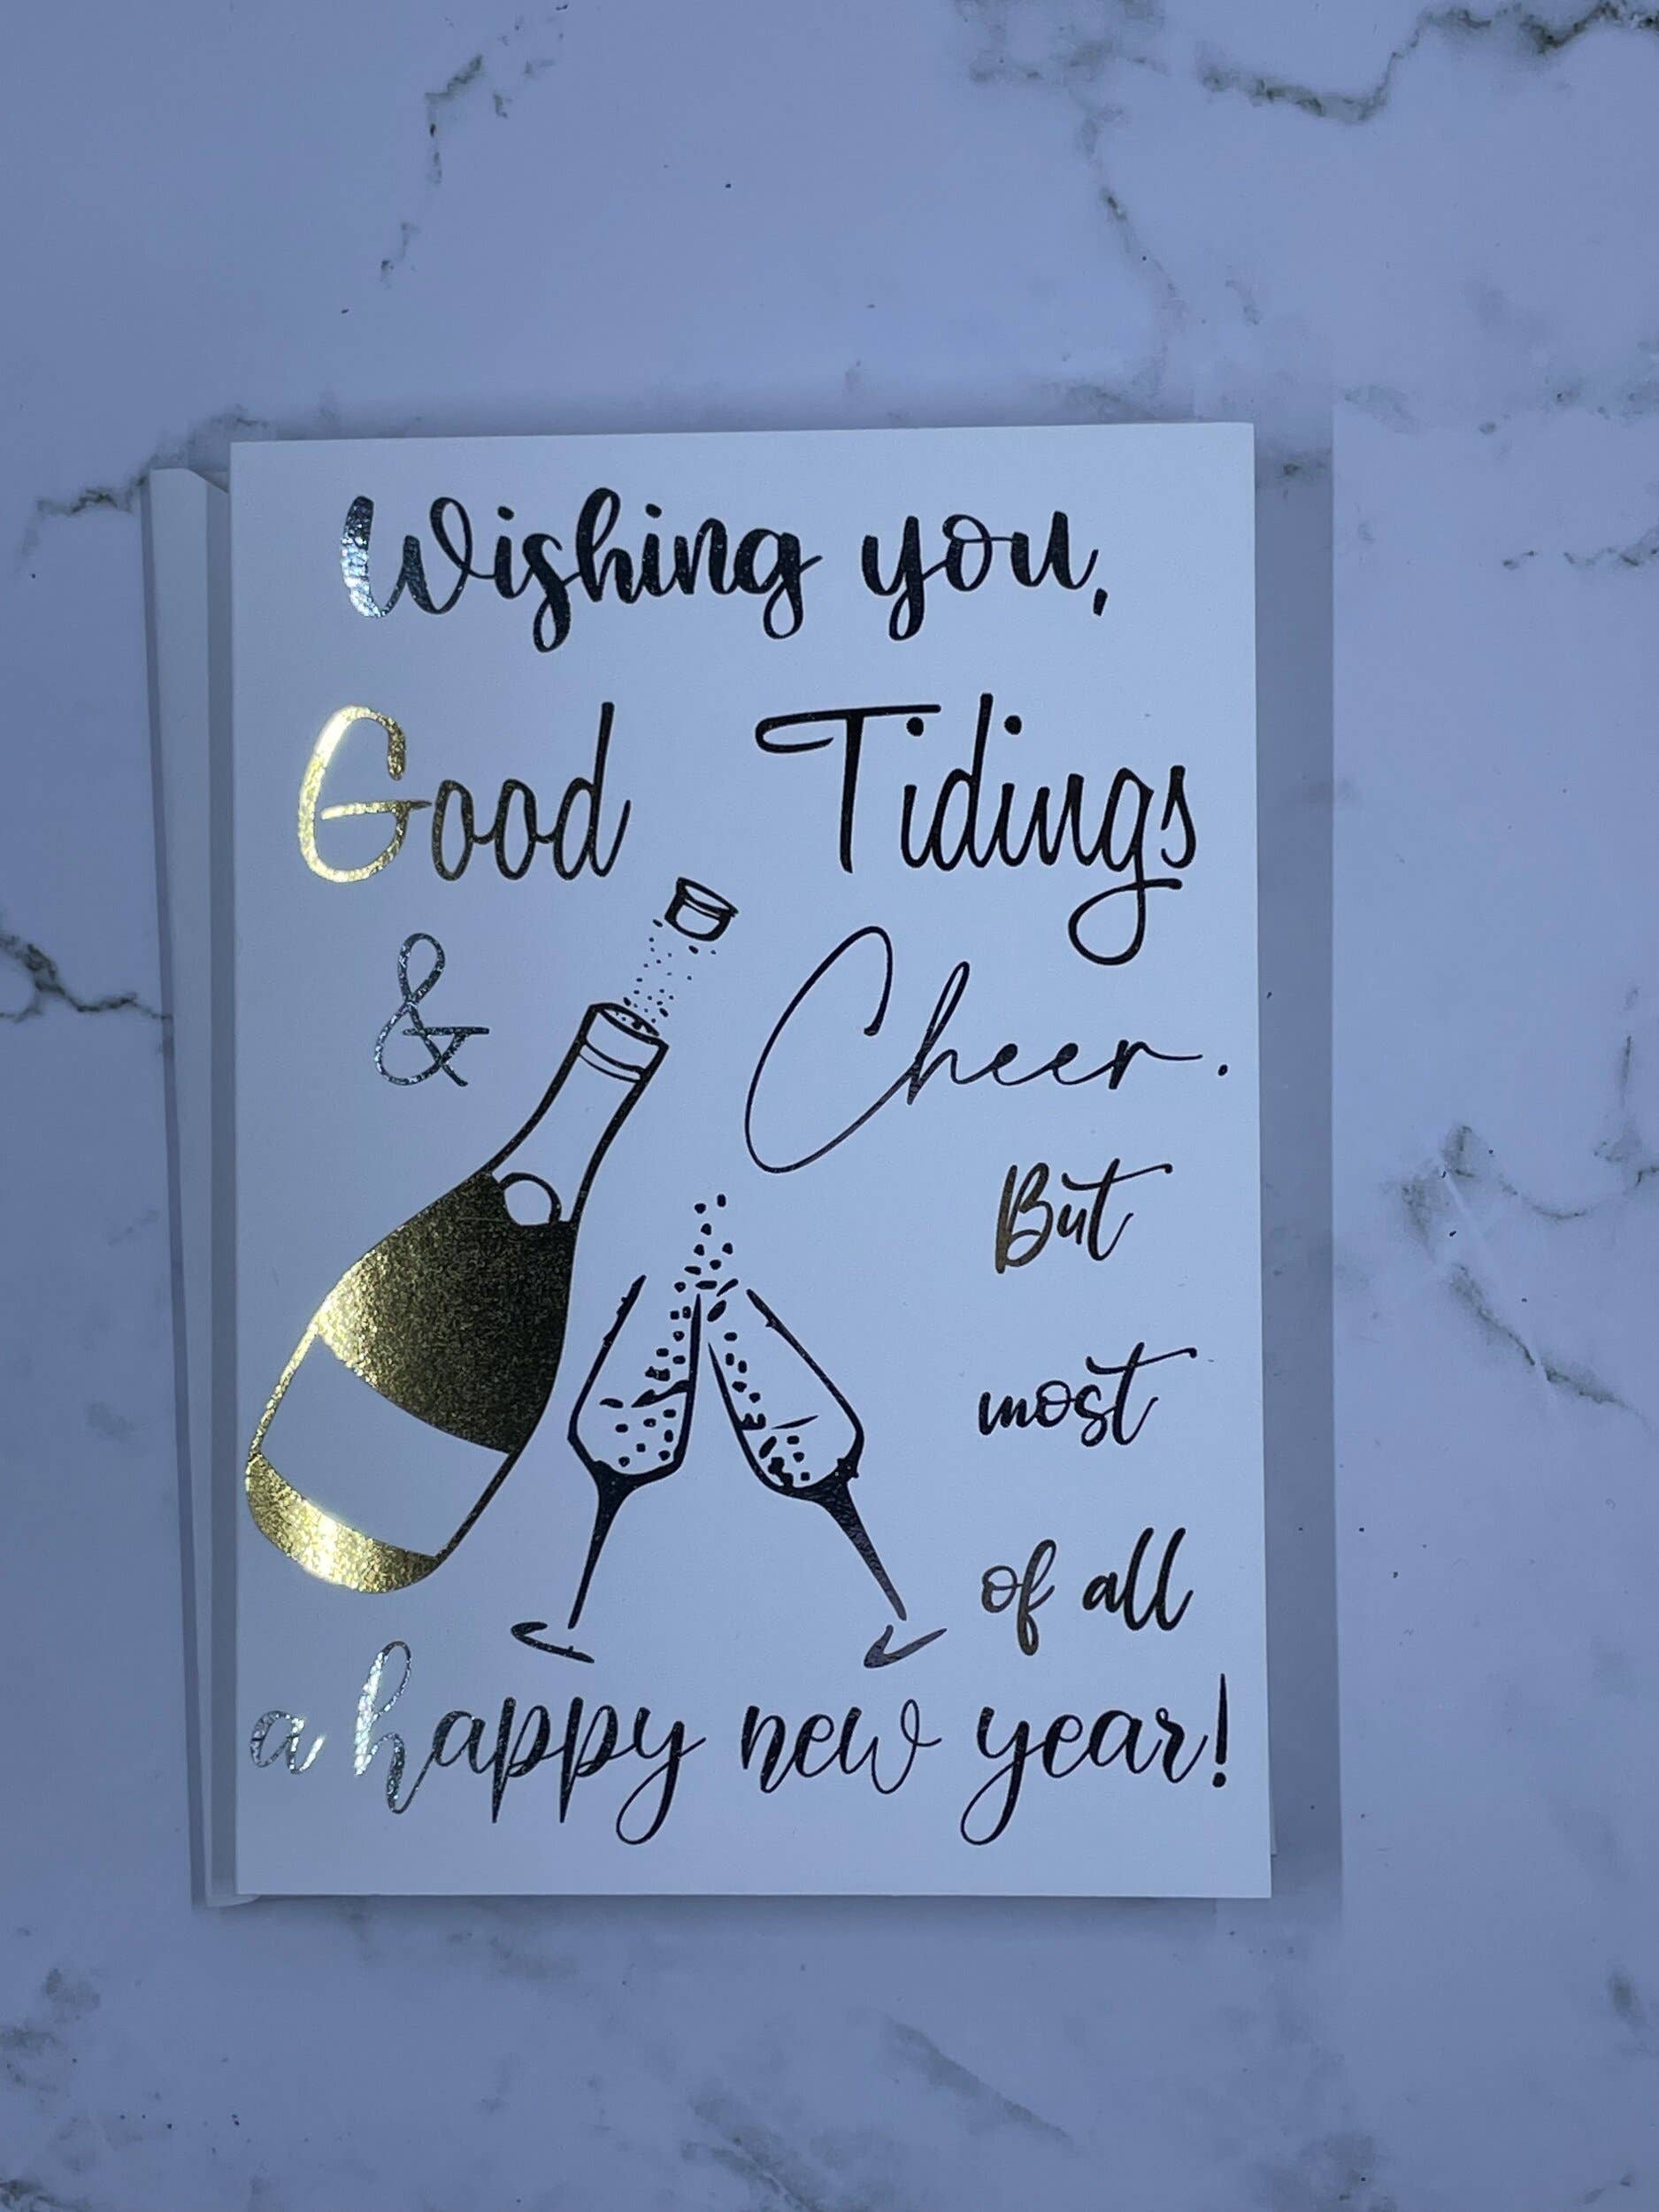 Wishing you,
Good Tidings
& Cheer.
But
most
of all
a happy new year!